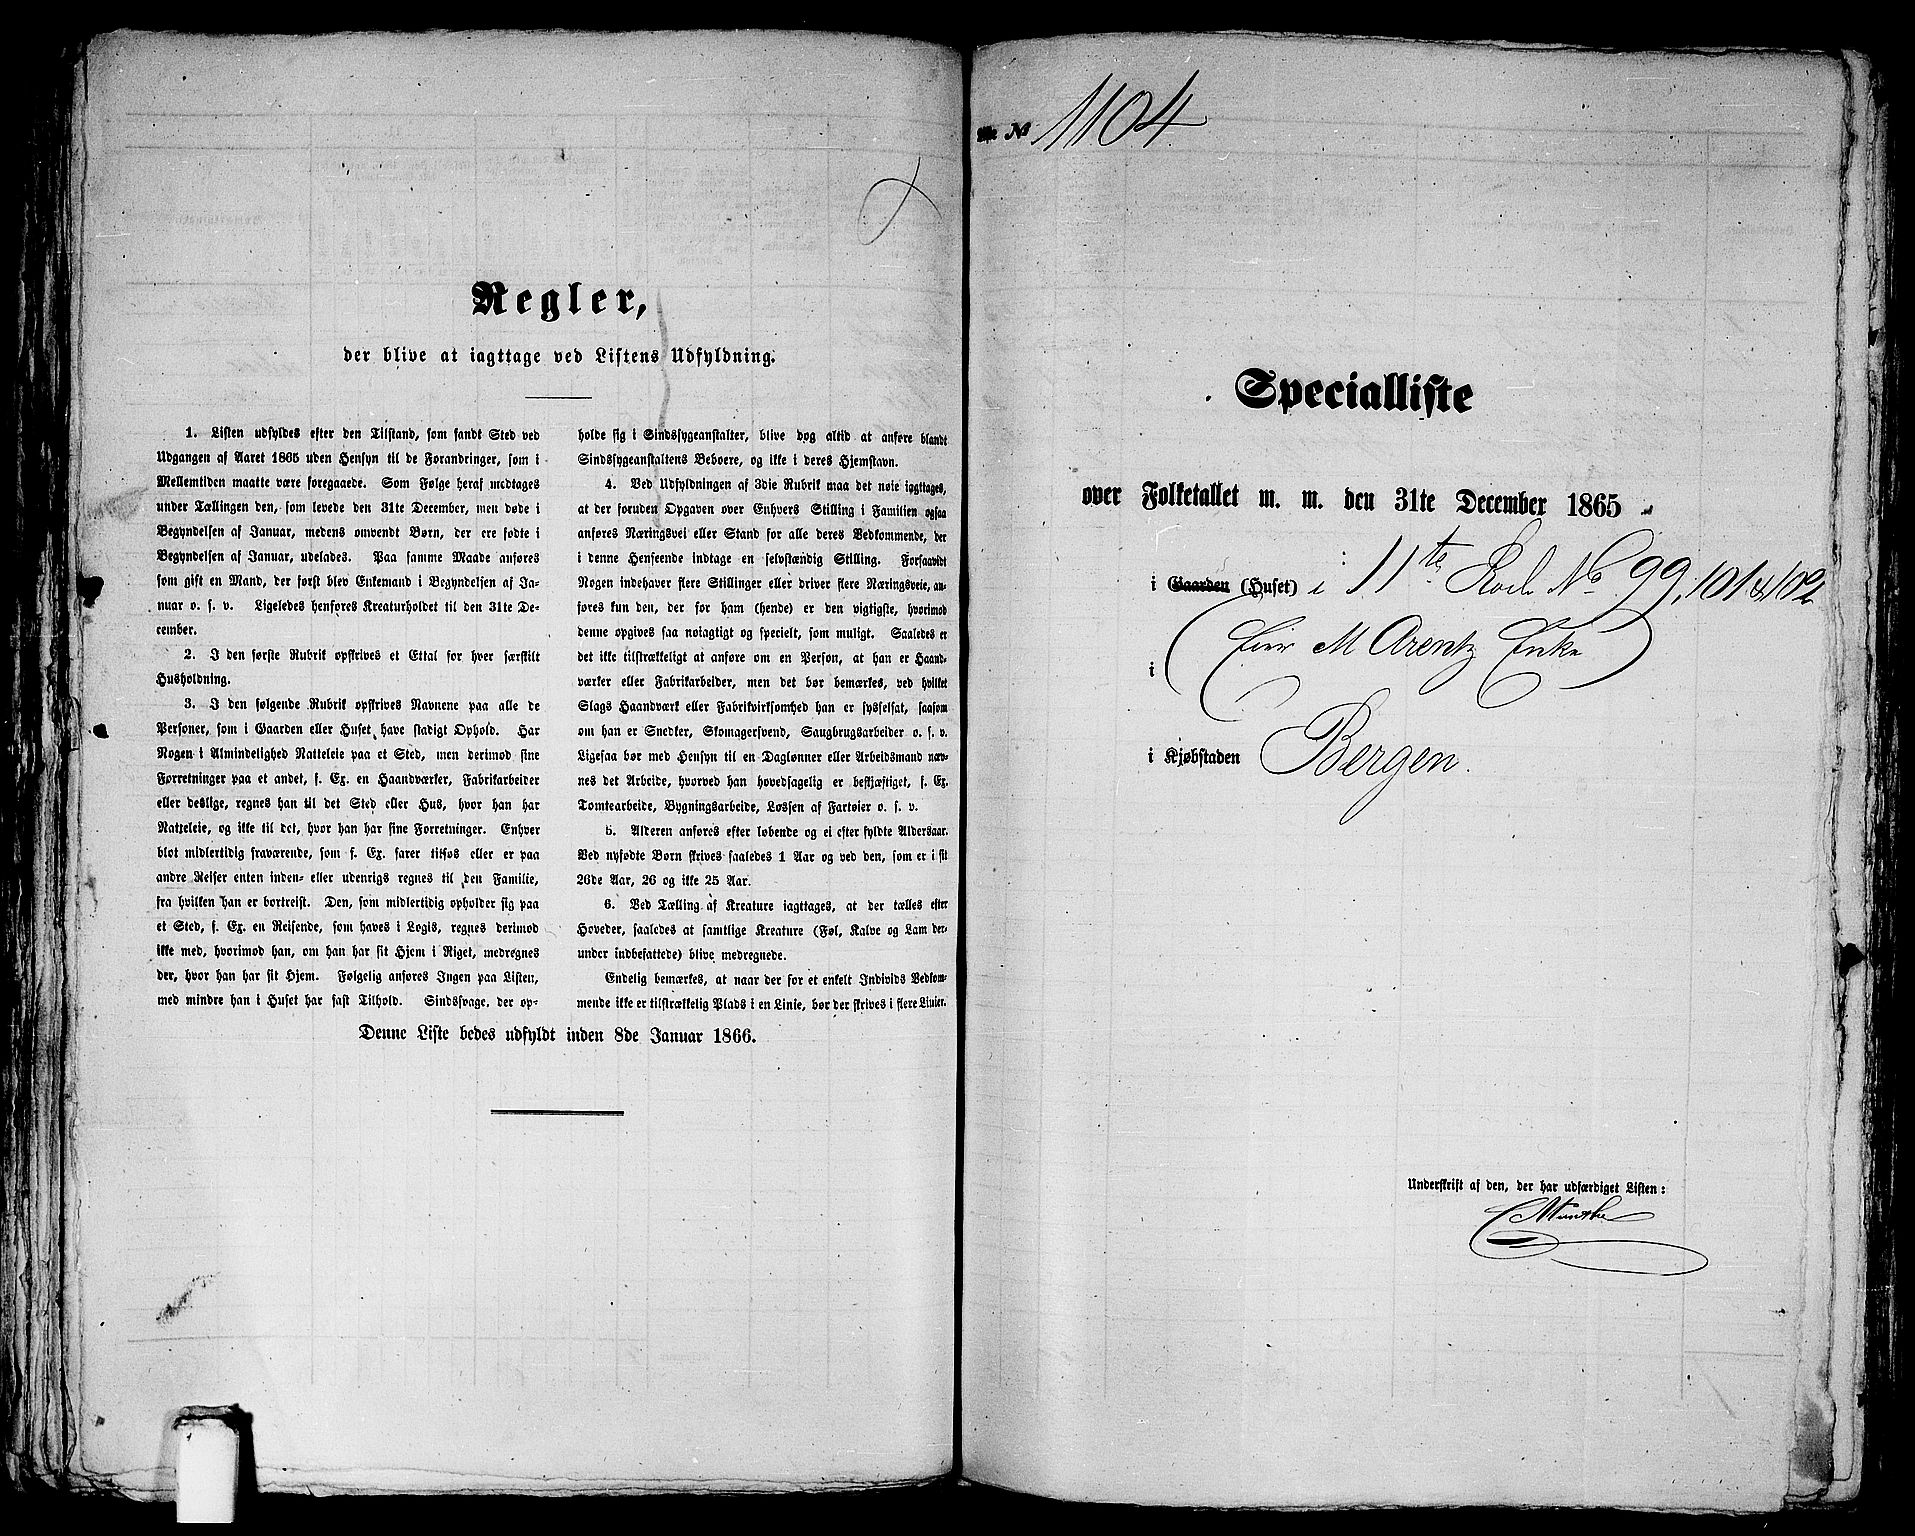 Regler,
der blive at iagttage ved Listens Udfyldning.
1. Listen udfyldes efter den Tilstand, som fandt Sted ved
Udgangen af Aaret 1865 uden Hensyn til de Forandringer, som i
Mellemtiden maatte være foregaaede. Som Følge heraf medtages
under Tællingen den, som levede den 31te December, men døde i
Begyndelsen af Januar, medens omvendt Børn, der ere fødte i
Begyndelsen af Januar, udelades. Paa samme Maade anføres
som gift en Mand, der først blev Enkemand i Begyndelsen af Ja-
nuar o. s. v. Ligeledes henføres Kreaturholdet til den 31te De-
cember.
2. I den første Rubrik opskrives et Ettal for hver særskilt
Husholdning.
3. I den følgende Rubrik opskrives Navnene paa alle de
Personer, som i Gaarden eller Huset have stadigt Ophold. Har
Nogen i Almindelighed Natteleie paa et Sted, men derimod sine
Forretninger paa et andet, f. Ex. en Haandværker, Fabrikarbeider
eller deslige, regnes han til det Sted eller Hus, hvor han har
Natteleie, og ikke til det, hvor han har sine Forretninger. Enhver
blot midlertidig fraværende, som f. Ex. farer tilsøs eller er paa
andre Reiser enten inden- eller udenrigs regnes til den Familie,
fra hvilken han er bortreist. Den, som midlertidig opholder sig paa
et Sted, f. Ex. en Reisende, som haves i Logis, regnes derimod
ikke med, hvorimod han, om han har sit Hjem i Riget, medregnes
der, hvor han har sit Hjem. Følgelig anføres Ingen paa Listen,
med mindre han i Huset har fast Tilhold. Sindssvage, der op-
holde sig i Sindssygeanstalter, blive dog altid at anføre blandt
Sindssygeanstaltens Beboere, og ikke i deres Hjemstavn.
4. Ved Udfyldningen af 3die Rubrik maa det nøie iagttages,
at der foruden Opgaven over Enhvers Stilling i Familien ogsaa
anføres Næringsvei eller Stand for alle deres Vedkommende, der
i denne Henseende indtage en selvstændig Stilling. Forsaavidt
Nogen indehaver flere Stillinger eller driver flere Næringsveie, an-
føres kun den, der for ham (hende) er den vigtigste, hvorimod
denne opgives saa nøiagtigt og specielt, som muligt. Saaledes er
det ikke tilstrækkeligt at anføre om en Person, at han er Haand-
værker eller Fabrikarbeider, men det bør bemærkes, ved hvilket
Slags Haandværk eller Fabrikvirksomhed han er sysselsat, saasom
om han er Snedker, Skomagersvend, Saugbrugsarbeider o. s. v.
Ligesaa bør med Hensyn til en Daglønner eller Arbeidsmand næv-
nes det Arbeide, hvorved han hovedsagelig er beskjæftiget, f. Ex.
Tomtearbeide, Bygningsarbeide, Lossen af Fartøier o. s. v.
5. Alderen anføres efter løbende og ei efter fyldte Aldersaar.
Ved nyfødte Børn skrives saaledes 1 Aar og ved den, som er i sit
26de Aar, 26 og ikke 25 Aar.
6. Ved Tælling af Kreature iagttages, at der tælles efter
Hoveder, saaledes at samtlige Kreature (Føl, Kalve og Lam der-
under indbefattede) blive medregnede.
Endelig bemærkes, at naar der for et enkelt Individs Vedkom-
mende ikke er tilstrækkelig Plads i en Linie, bør der skrives i flere Linier.
Denne Liste bedes udfyldt inden 8de Januar 1866.
No 1104
Specialliste
over Folketallet m. m. den 31te December 1865
i Gaarden (Huset) i 11te Rode No 99, 101 & 102
i (Eier M Arentz Enke)
i Kjøbstaden Bergen.
Underskrift af den, der har udfærdiget Listen:
CMunthe